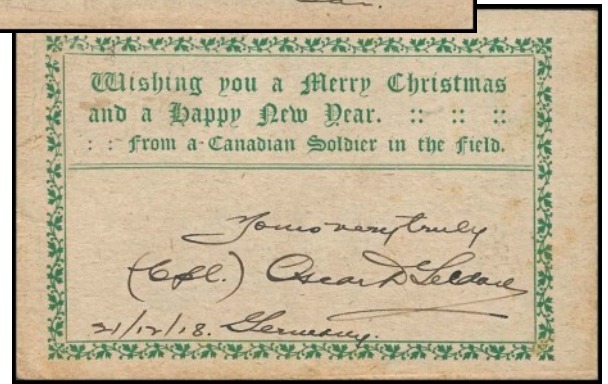 Wishing you a Merry Christmas
and a Happy New Year. :: :: ::
: : From a Canadian Soldier in the Field.
Yours very truly
(Cpl.) Oscar D
21/12/18. Germany.